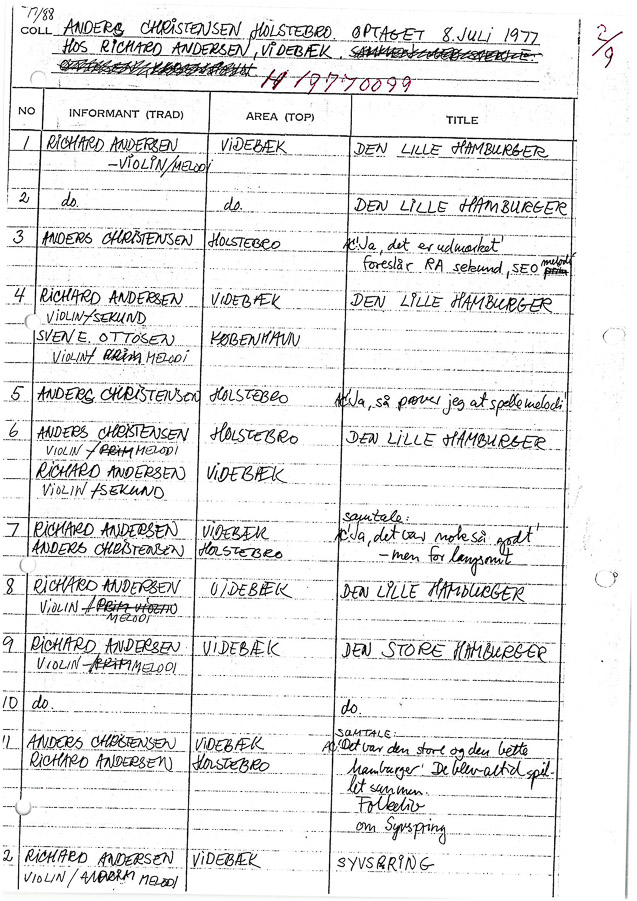 17/88
COLL ANDERS CHRISTENSEN HOLSTEBRO. OPTAGET 8. JULI 1977
HOS RICHARD ANDERSEN, VIDEBÆK.
H 1977 0099
2/9
NO INFORMANT (TRAD) AREA (TOP) TITLE
1 RICHARD ANDERSEN VIDEBÆK DEN LILLE HAMBURGER
-VIOLIN/MELODI
2 do. do. DEN LILLE HAMBURGER
3 ANDERS CHRISTENSEN HOLSTEBRO AC: 'Ja, det er udmærket'
foreslår RA sekund, SEO melodi
4 RICHARD ANDERSEN VIDEBÆK DEN LILLE HAMBURGER
VIOLIN/SEKUND
SVEN E. OTTOSEN KØBENHAVN
VIOLIN/ PRIM MELODI
5 ANDERS CHRISTENSEN HOLSTEBRO AC: 'Ja, så prøver jeg at spille melodi'
6 ANDERS CHRISTENSEN HOLSTEBRO DEN LILLE HAMBURGER
VIOLIN / PRIM MELODI
RICHARD ANDERSEN VIDEBÆK
VIOLIN/SEKUND
samtale:
7 RICHARD ANDERSEN VIDEBÆK AC: 'Ja, det var nok så godt'
ANDERS CHRISTENSEN HOLSTEBRO - men for langsomt
8 RICHARD ANDERSEN VIDEBÆK DEN LILLE HAMBURGER
VIOLIN / PRIM VIOLIN
MELODI
9 RICHARD ANDERSEN VIDEBÆK DEN STORE HAMBURGER
VIOLIN - PRIM MELODI
10 do. do.
SAMTALE:
11 ANDERS CHRISTENSEN VIDEBÆK AC: 'Det var den store og den bette
RICHARD ANDERSEN HOLSTEBRO hamburger'. De blev altid spil-
let sammen.
Folkeliv
om Syvspring
2 RICHARD ANDERSEN VIDEBÆK SYVSPRING
VIOLIN / MELODI